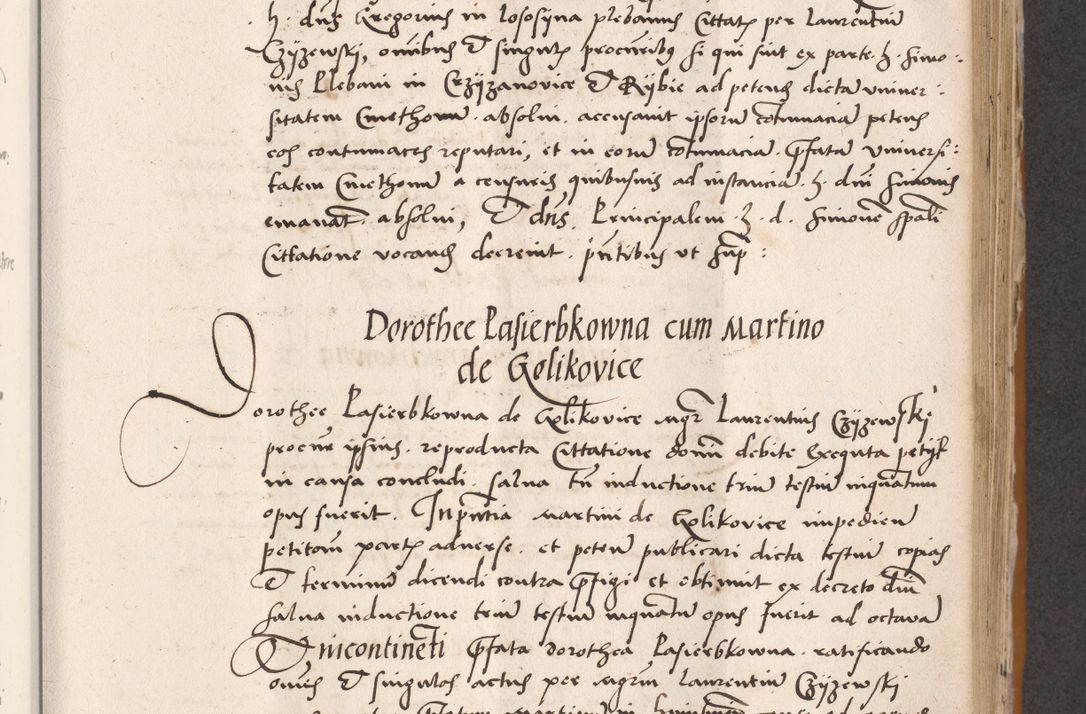 h. dns Gregorius in Lososyna plebanus Cittatq per Laurentiu
Czyzewski, omnibus et singulq procuribq si qui sint ex parte h. Simo:
nis Plebani in Crzyzanovice et Rybie ad petens dictā univer:
sitatem Cmethonu absolvi. accusavit ipsoru cotumaciā petens
eos contumaces reputari, et in eoru cotumaciā pfatā universi:
tatem Cmethonu a censuris quibusvis ad instanciā h. dni Simonis
emanat absolvi, et dns Principalem h. d. Simone spali
Cittatione vocand decrevit. pntibus ut sup:
Dorothee Pasierbkowna cum Martino
de Golikovice
Dorothee Pasierbkowna de Golikovice Mgr Laurentius Czyzewski
procur ipsius reproducta Cittatione domi debite Exequta petyt
in causa concludi. salva tn inductione triu testiu inquantum
opus fuerit. In pntia Martini de Golikovice impedien
petitom partq adverse. et peten publicari dicta testiu copias
et terminum dicendi contra pfigi et obtinuit ex decreto dni
salva inductione triu testiu inquatu opus fuerit ad octavā
Et incontineti pfata Dorothea Pasierbkowna ratificando
omes et singulos actus per Mgrm Laurentiu Czyzewski